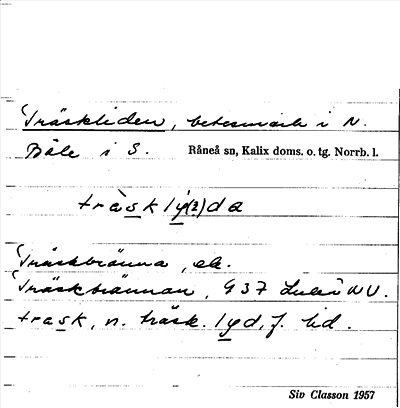 Träskliden, betesmark i N.
Böle i S. Råneå sn, Kalix doms. o. tg. Norrb. l.
tràsk lý(2)da
Träskbränna, ek.
Träskbrännan, 937 Luleå NV.
trask, n. träsk. lyd, f. lid.
Siv Classon 1957